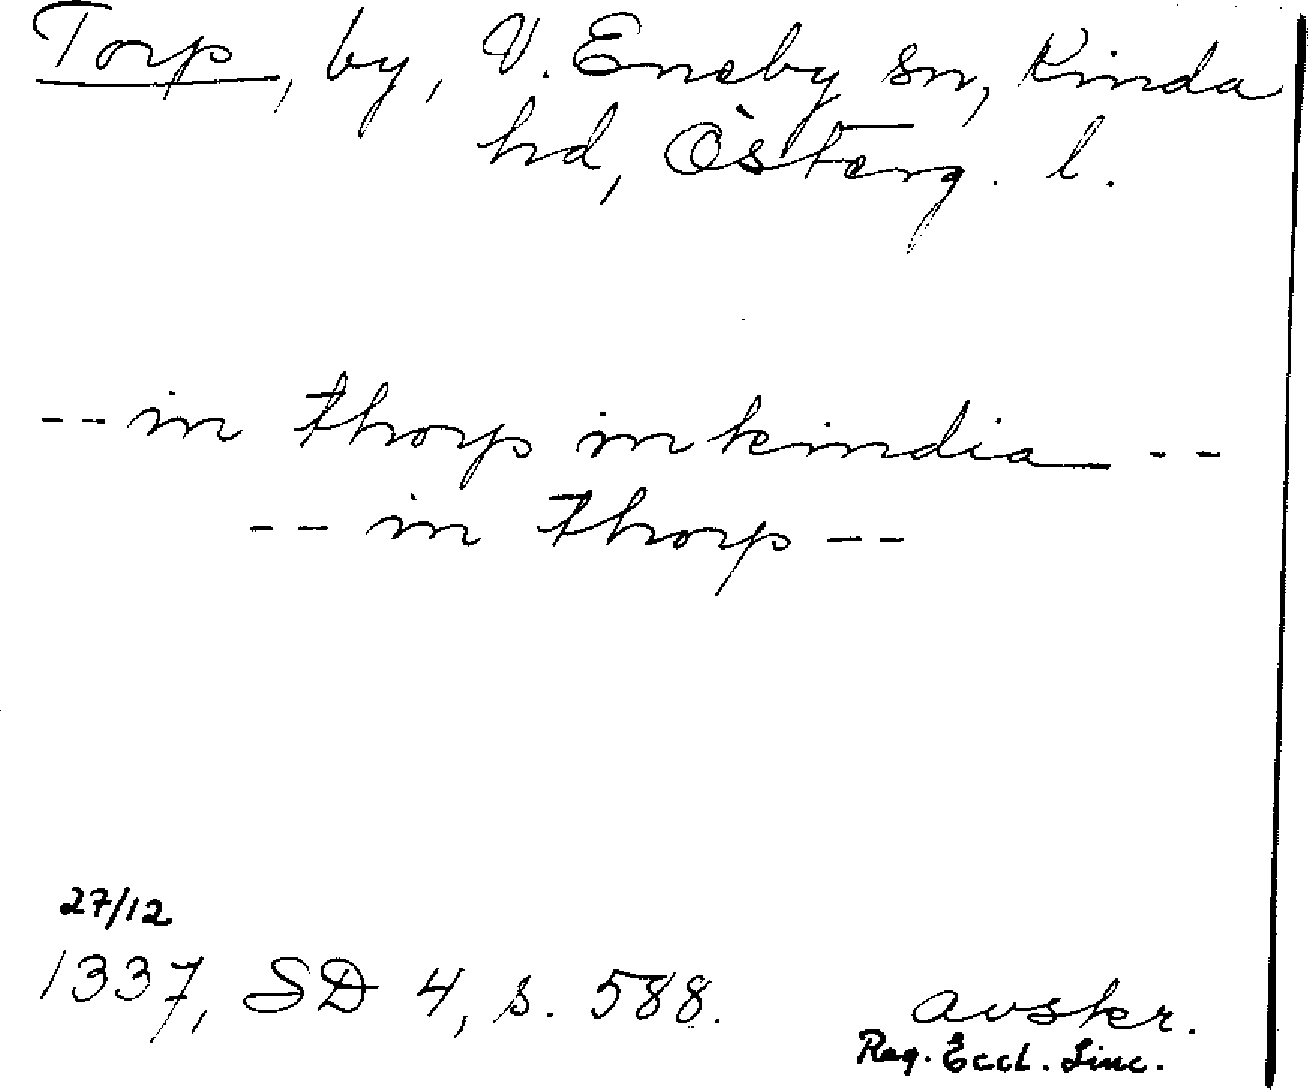 Torp, by, V. Eneby sn, Kinda
hd, Österg. l.
-- in thorp in kindia --
-- in thorp --
27/12
1337, SD 4, s. 588.
avskr.
Reg. Eccl. Linc.